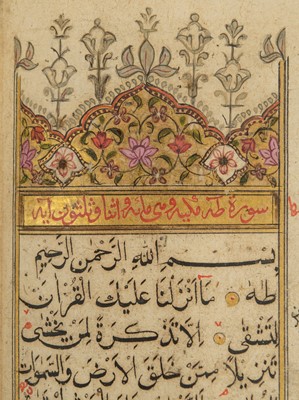 سورة طه مكية وهي مائة واثنا وثلثون آية
بسم الله الرحمن الرحيم
طه ما أنزلنا عليك القرآن
لتشقى إلا تذكرة لمن يخشى
تنزيلا ممن خلق الأرض والسموت